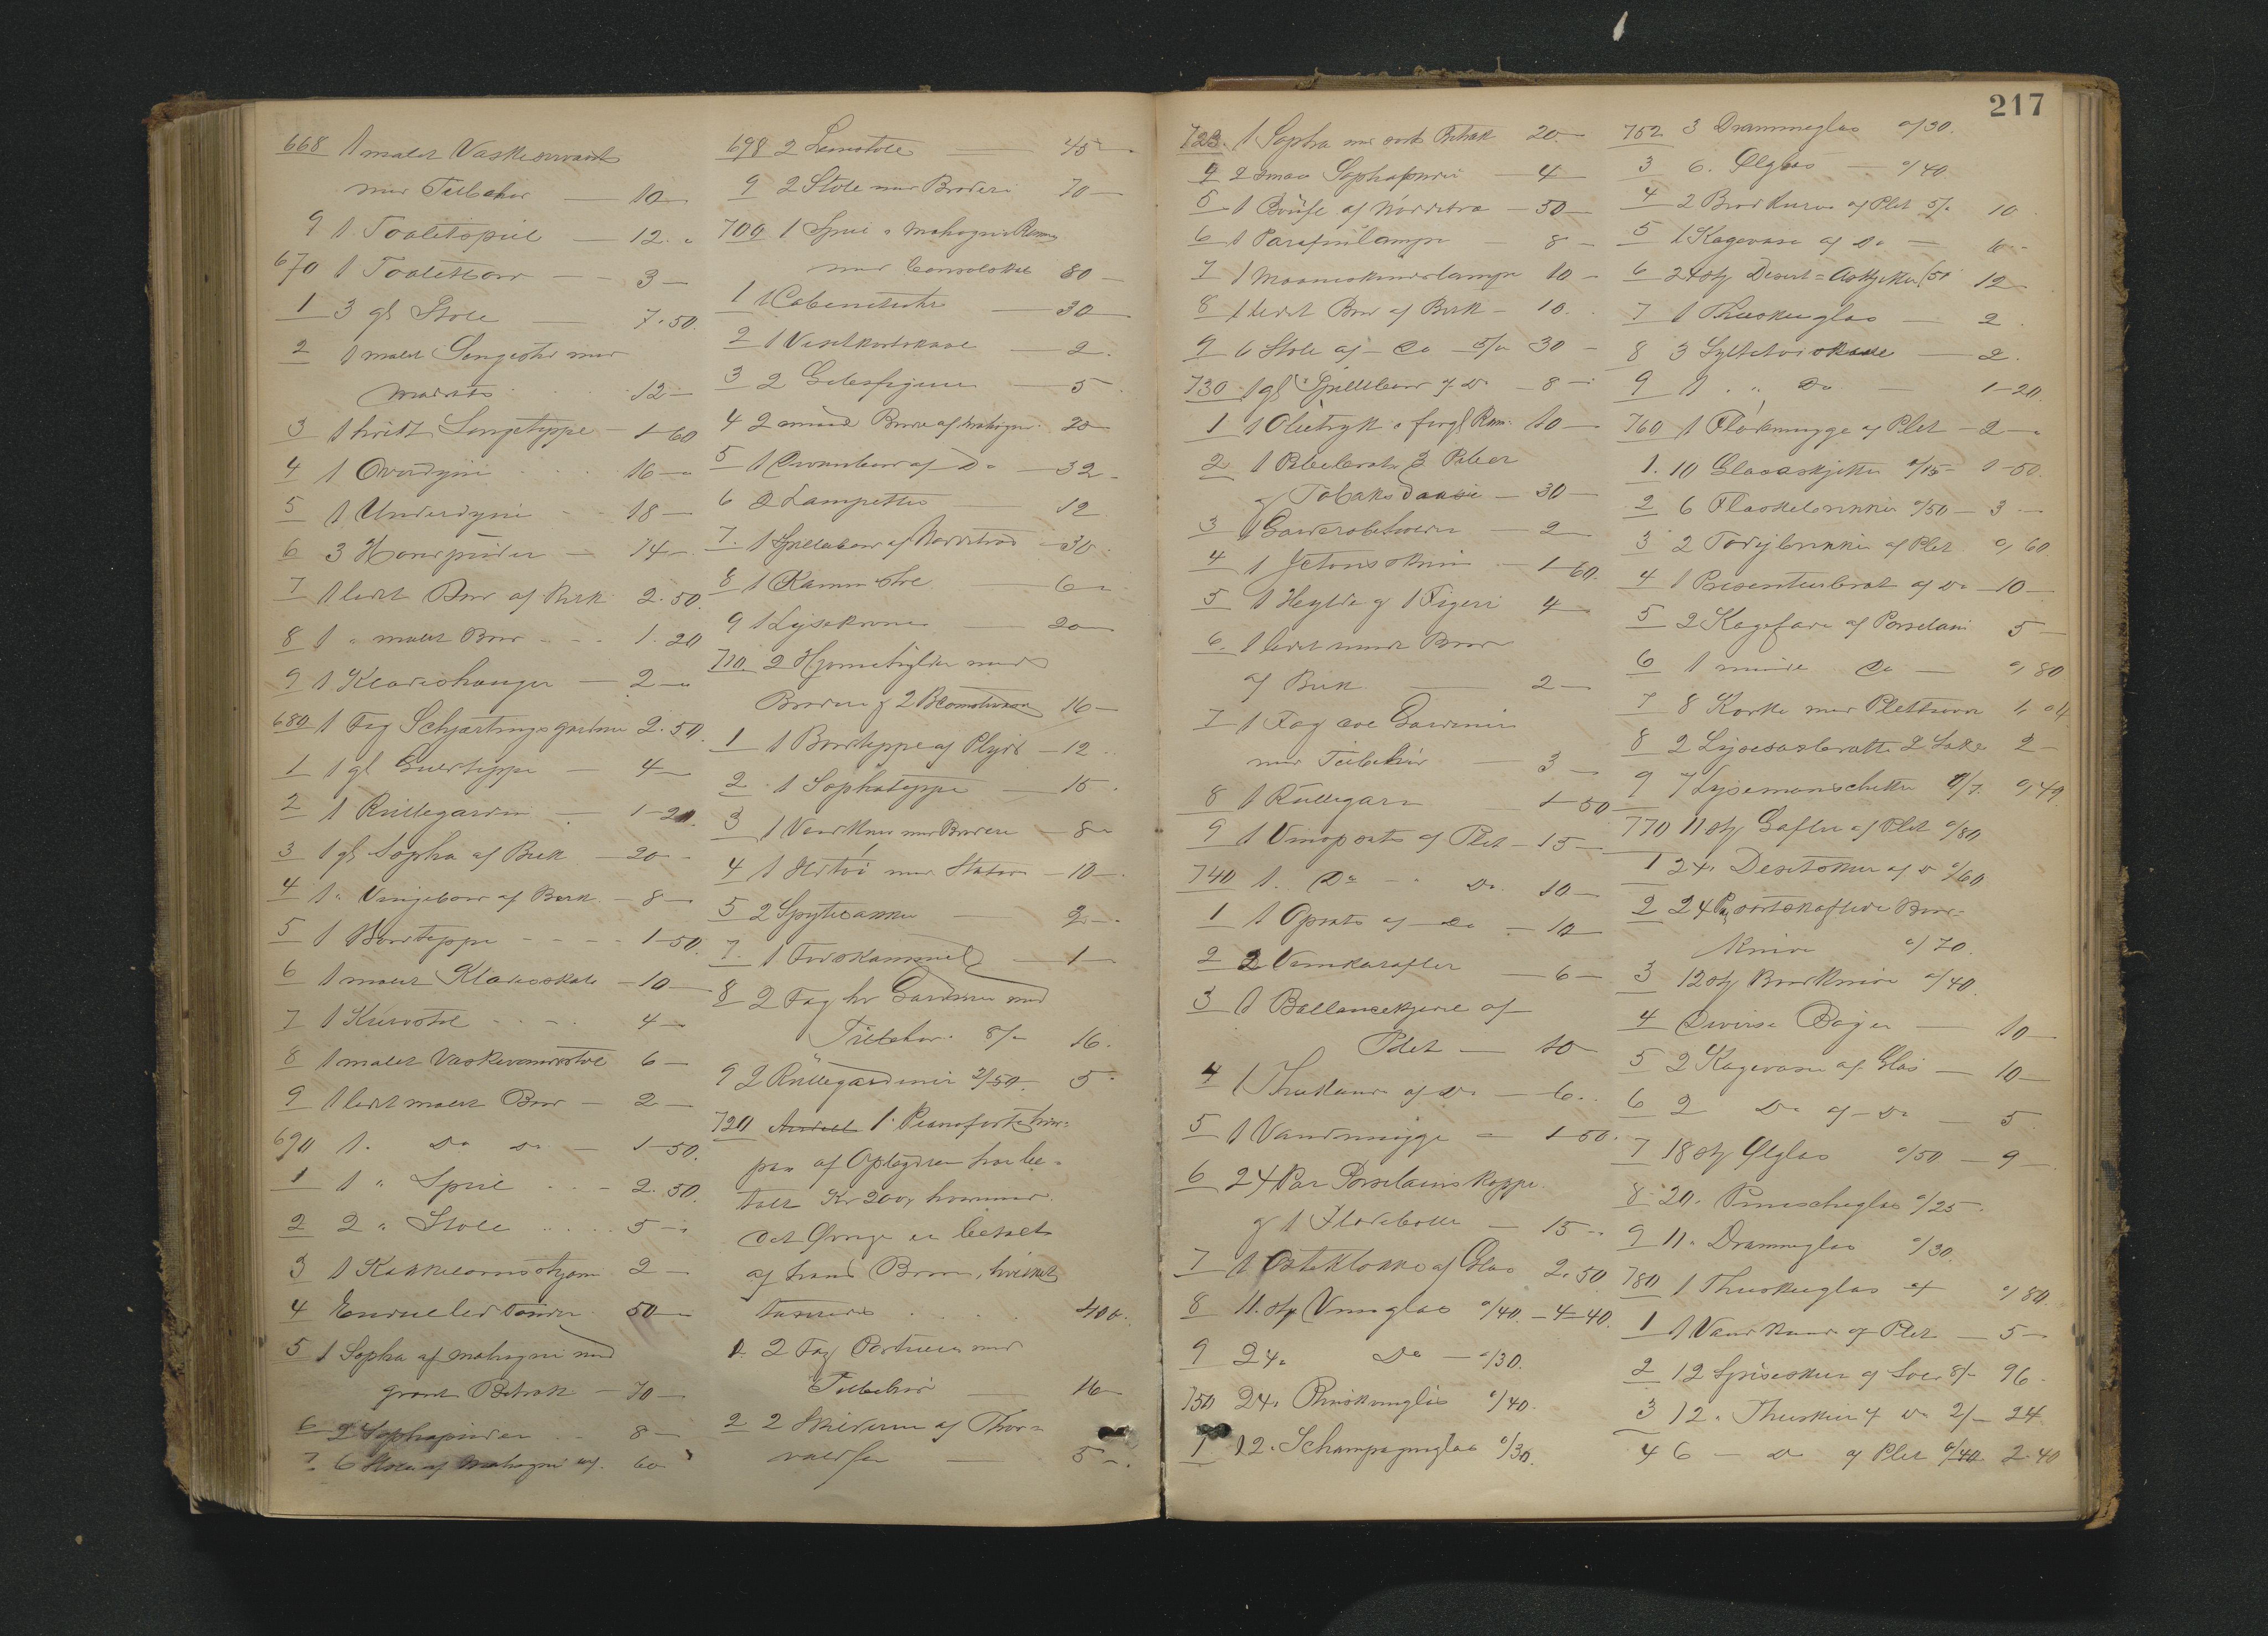 668 1 malet Vaskeservant
med Tilbehør — 10 —
9 1 Toaletspeil — 12 "
670 1 Toaletbord — 3 —
1 3 gl Stole — 7.50.
2 1 malet Sengested med
Madrats 12 —
3 1 hvidt Sengeteppe — 1-60
4 1 Overdyne 16 —
5 1 Underdyne 18 —
6 3 Hovedpuder — 14 —
7 1 lidet Bord af Birk 2.50.
8 1 " malet Bord 1.20
9 1 Klædeshenger — 2 —
680 1 Fag Schjertingsgardiner 2.50.
1 1 gl Gulvteppe — 4 —
2 1 Rullegardin — 1-20.
3 1 gl Sopha af Birk — 20 —
4 1 " Vingebord af Birk — 8 —
5 1 Bordteppe 1-50.
6 1 malet Klædesskab — 10 —
7 1 Kurvstol 4 —
8 1 malet Vaskevandsstol 6 —
9 1 lidet malet Bord — 2 —
690 1. Do Do — 1-50.
1 1 " Speil 2.50.
2 2 " Stole 5 —
3 1 Kakkelovnsskjerm 2 —
4 50 —
5 1 Sopha af Mahogni med
grønt Betræk — 70 —
6 2 Sophapuder 8 —
7 6 Stole af Mahogni 60
698 2 Lænstole — 45 —
9 2 Stole med Broderi 70 —
700 1 Speil i Mahogni Ramme
med Consolskab 80 —
1 1 Cabinetsuhr — 30 —
2 1 Visitkortskaal — 2.
3 2 Gibsfigurer — 5
4 2 runde Borde af Mahogni 20
5 1 Divanbord af Do — 32 —
6 2 Lampetter — 12
7. 1 Spillebord af Nøddetræ — 30 —
8 1 Kamin Stol — 6 —
9 1 Lysekrone — 20 —
710. 2 Hjørnehylder med
Broderi & 2 Blomstervaser 16 —
1 1 Bordteppe af Plyds — 12
2 1 Sophateppe — 15
3 1 med Broderi — 8 —
4 1 Ildtøi med Stativ — 10 —
5 2 Spyttebakker 2 —
7. 1 Fodskammel — 1 —
8 2 Fag hv Gardiner med
Tilbehør 8/- 16.
9 2 Rullegardiner 2/50. 5
720 1 Pianoforte hvor-
paa af Opbyderen har be-
talt Kr 200, hvorimod
det Øvrige er betalt
af hans Broder, hvilket
taxeredes 400.
1 2 Fag Portierer med
Tilbehør — 16 —
2 2 Skilderier af Thor-
valdsen — 5 —
217
723. 1 Sopha med sort Betræk 20 —
4 2 smaa Sophapuder — 4 —
5 1 Büffe af Nøddetræ — 50 —
6 1 Parafinlampe — 8 —
7 1 Maaneskinnslampe 10 —
8 1 lidet Bord af Birk — 10.
9 6 Stole af Do 5/- 30 —
730 1 gl Spillebord af Do — 8 —
1 1 Olietryk i forgl Ram. 10 —
2 1 Pibebræt 3 Piber
& Tobaksdaase — 30 —
3 1 Garderobeholder — 2 —
4 1 Jetonsskrin — 1-60.
5 1 Hylde & 1 Figur 4 —
6. 1 lidet rundt Bord
af Birk — 2 —
7 1 Fag Gardiner
med Tilbehør — 3 —
8 1 Rullegard 1-50
9 1 Vinopsats af Plet — 15 —
740 1. Do Do. 10 —
1 1 Opsats af Do — 10 —
2 2 Vinkarafler — 6 —
3 1 Ballancekjedel af
Plet — 10 —
4 1 Thekande af Do — 6.
5 1 Vandmugge — 1-50.
6 24 Par Porselainskopper
& 1 Flødebolle — 15 —
7 1 Osteklokke af Glas 2.50.
8 11. stk Vinglas "/40. — 4-40.
9 24 " Do — "/30.
750 24 " Rhinskvinglas "/40.
1 12 " Schampagneglas "/30.
752 3 Drammeglas "/30.
3 6. Ølglas — "/40
4 2 Brødkurve af Plet 5/- 10.
5 1 Kagevase af Do — 6 —
6 24 stk Desert=Asketter "/50 12
7 1 Theskeglas — 2.
8 3 Syltetøiskaale — 2.
9 1 " Do — 1-20.
760 1 Flødemugge af Plet — 2 —
1. 10 Glasasjetter "/15 — 1-50.
2 6 Flaskebrikker "/50 — 3 —
3 2 Todybrikker af Plet ", 60.
4 1 Presenteerbræt af Do — 10 —
5 2 Kagefade af Porselain 5 —
6 1 mindre Do — ", 80
7 8 Korke med Pletfigurer
8 2 Lysesaxbrætte 2 Sakse 2 —
9 7 Lysemanschetter "/7. ", 49.
770 11 stk Gafler af Plet "/80
1 24 " Desertskeer af Do "/60.
2 24 Par sortskaftede Bord-
knive "/70.
3 12 stk Bordknive "/40.
4 Diverse Bøger — 10 —
5 2 Kagevaser af Glas — 10 —
6 2 Do af Do — 5
7 18 stk Ølglas "/50 — 9 —
8. 20 " Punscheglas "/25.
9 11 " Drammeglas "/30.
780 1 Theskeglas ", 80.
1 1 Vandkande af Plet — 5 —
2 12 Spiseskeer af Sølv 8/- 96 —
3 12 " Theskeer af Do 2/- 24
4 6 — Do af Plet "/40 2.40